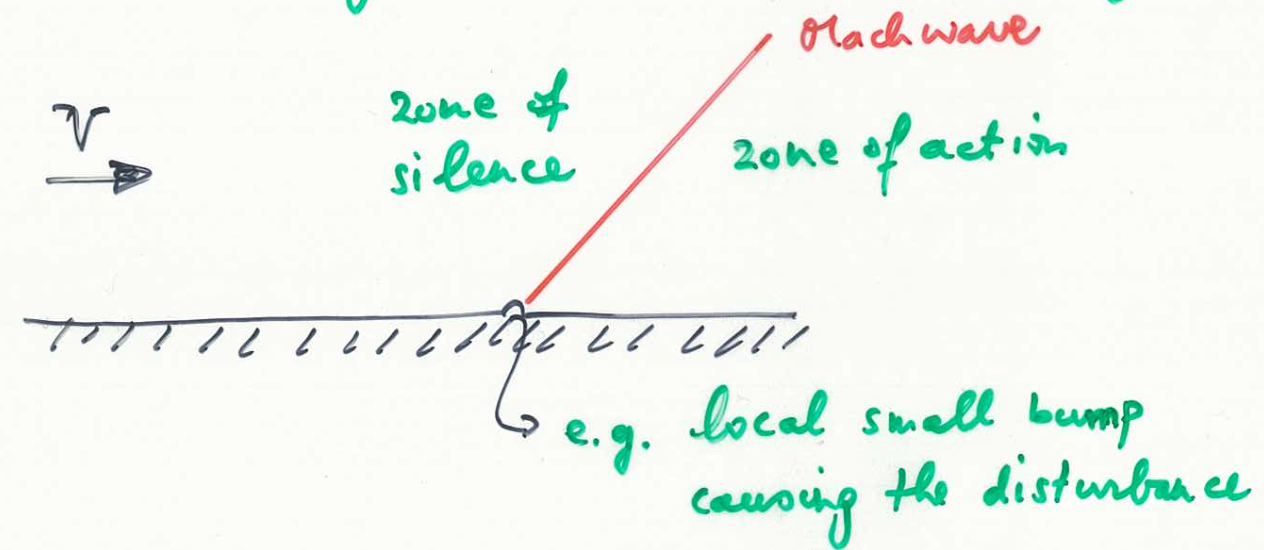 Mach wave
zone of
silence
V
zone of action
e.g. local small bump
causing the disturbance